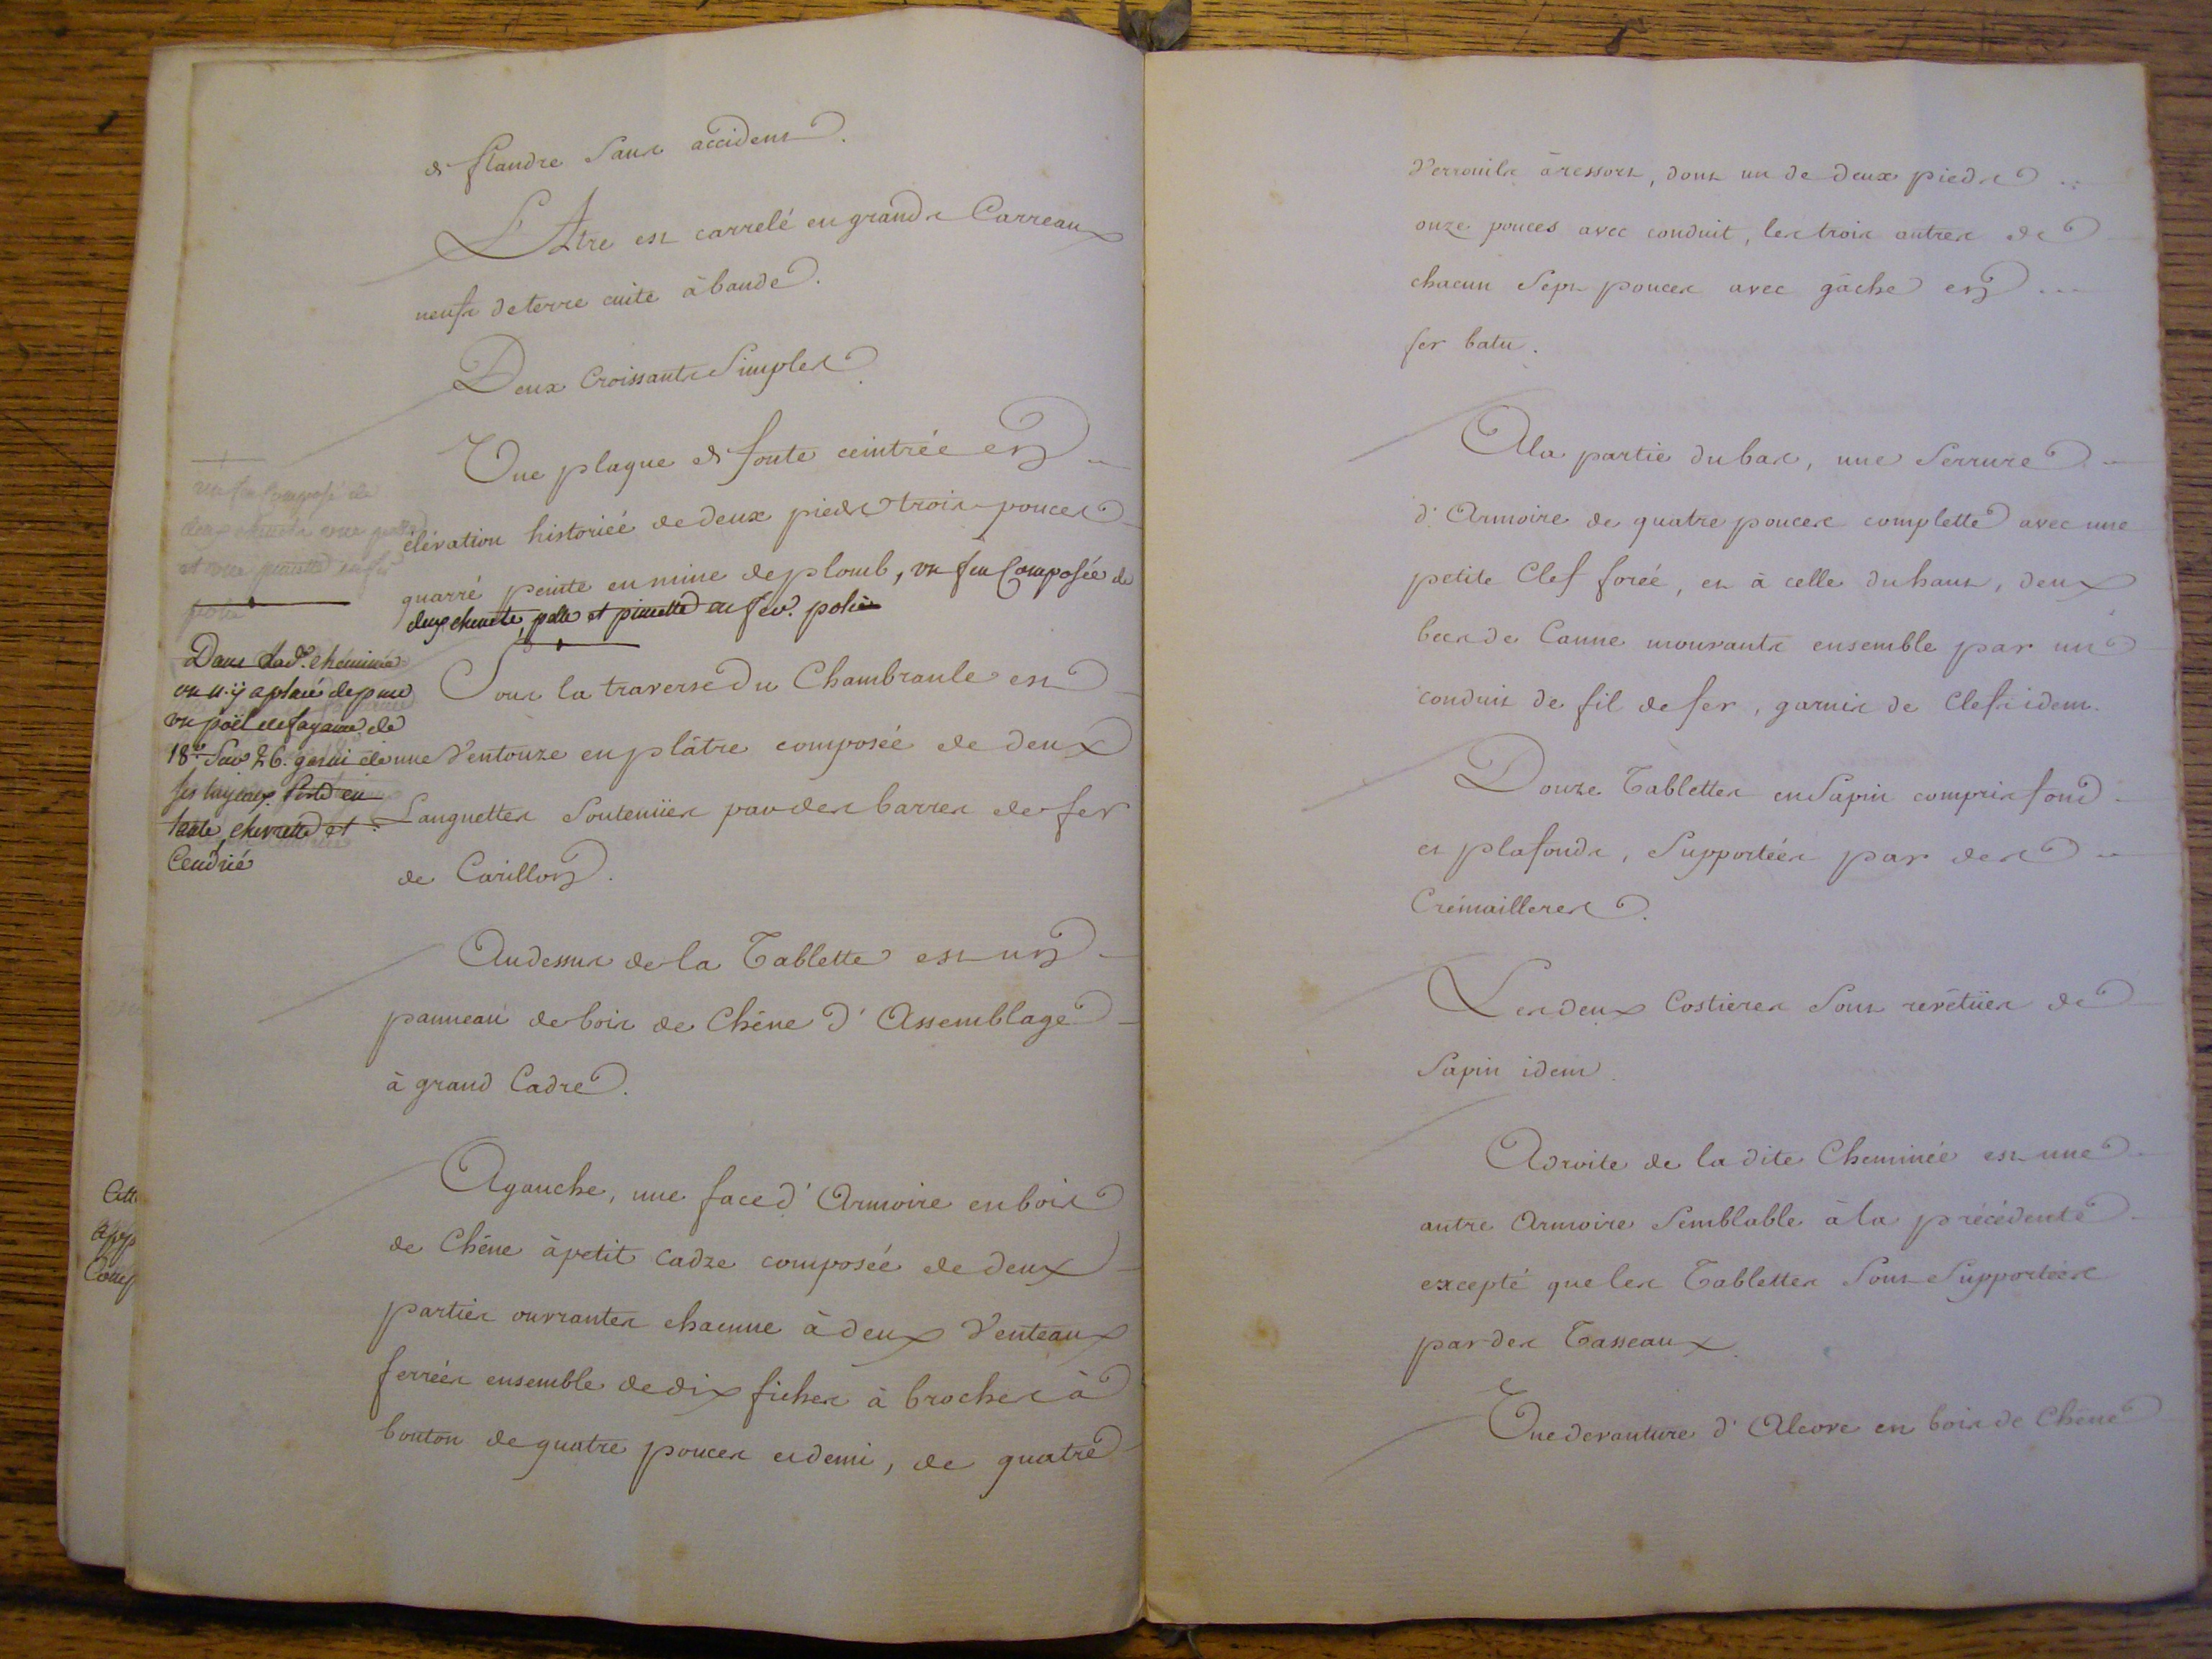 de flandre Sans accidens.
L'Atre est carrelé en grands Carreaux
neufs de terre cuite à bande.
Deux Croissants Simples
Une plaque de fonte ceintrée en
élévation historiée de deux pieds trois pouces
quarré peinte en mine de plomb, un feu Composée de
deux chenets, pelle et pincette en fer poli
un feu Composé de
deux chenets une pelle
et une pincette en fer
poli
Dans lad.e cheminée
on n'y a placé depuis
un poël de fayance de
18.o Sur 26. garni de
ses tuyaux
tole, chevrette et
Cendrié
Sous la traverse du Chambranle est
une Ventouze en plâtre composée de deux
Languettes Soutenües par des barres de fer
de Carillon.
Audessus de la Tablette est un
panneau de bois de Chêne d'Assemblage
à grand Cadre.
Agauche, une face d'Armoire en bois
de Chêne à petit cadre composée de deux
parties ouvrantes chacune à deux Venteaux
ferrées ensemble de dix fiches à broches à
bouton de quatre pouces et demi, de quatre
Verrouils à ressort, dont un de deux pieds
onze pouces avec conduit, les trois autres de
chacun Sept pouces avec gâche en
fer batu.
Ala partie du bas, une Serrure
d'Armoire de quatre pouces complette avec une
petite Clef forée, et à celle du haut, deux
becs de Canne mouvants ensemble par un
conduit de fil de fer, garnis de Clefs idem.
Douze Tablettes en Sapin compris fond
et plafonds, Supportées par des
Crémailleres.
Les deux Costieres Sont revêtües de
Sapin idem.
Adroite de la dite Cheminée est une
autre Armoire Semblable à la précédente
excepté que les Tablettes Sont Supportées
par des Tasseaux.
Une devanture d'Alcove en bois de Chêne